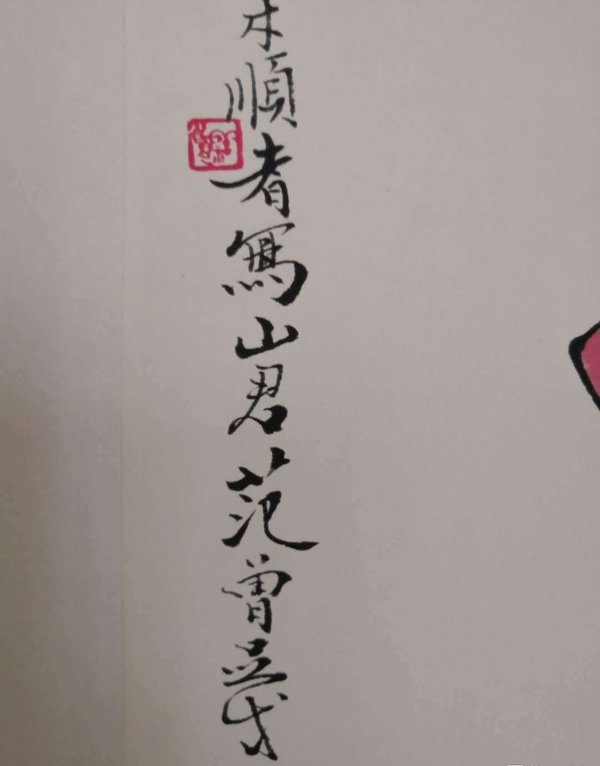 順者寫山君范曾並